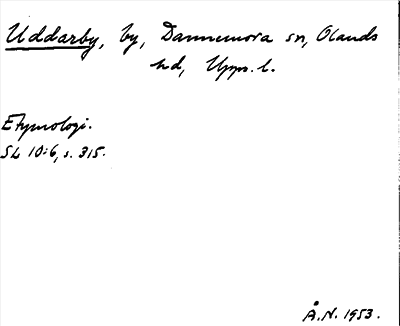 Uddarby, by, Dannemora sn, Olands
hd, Upps. l.
Etymologi.
SL 10:6, s. 315.
Å.N. 1953.